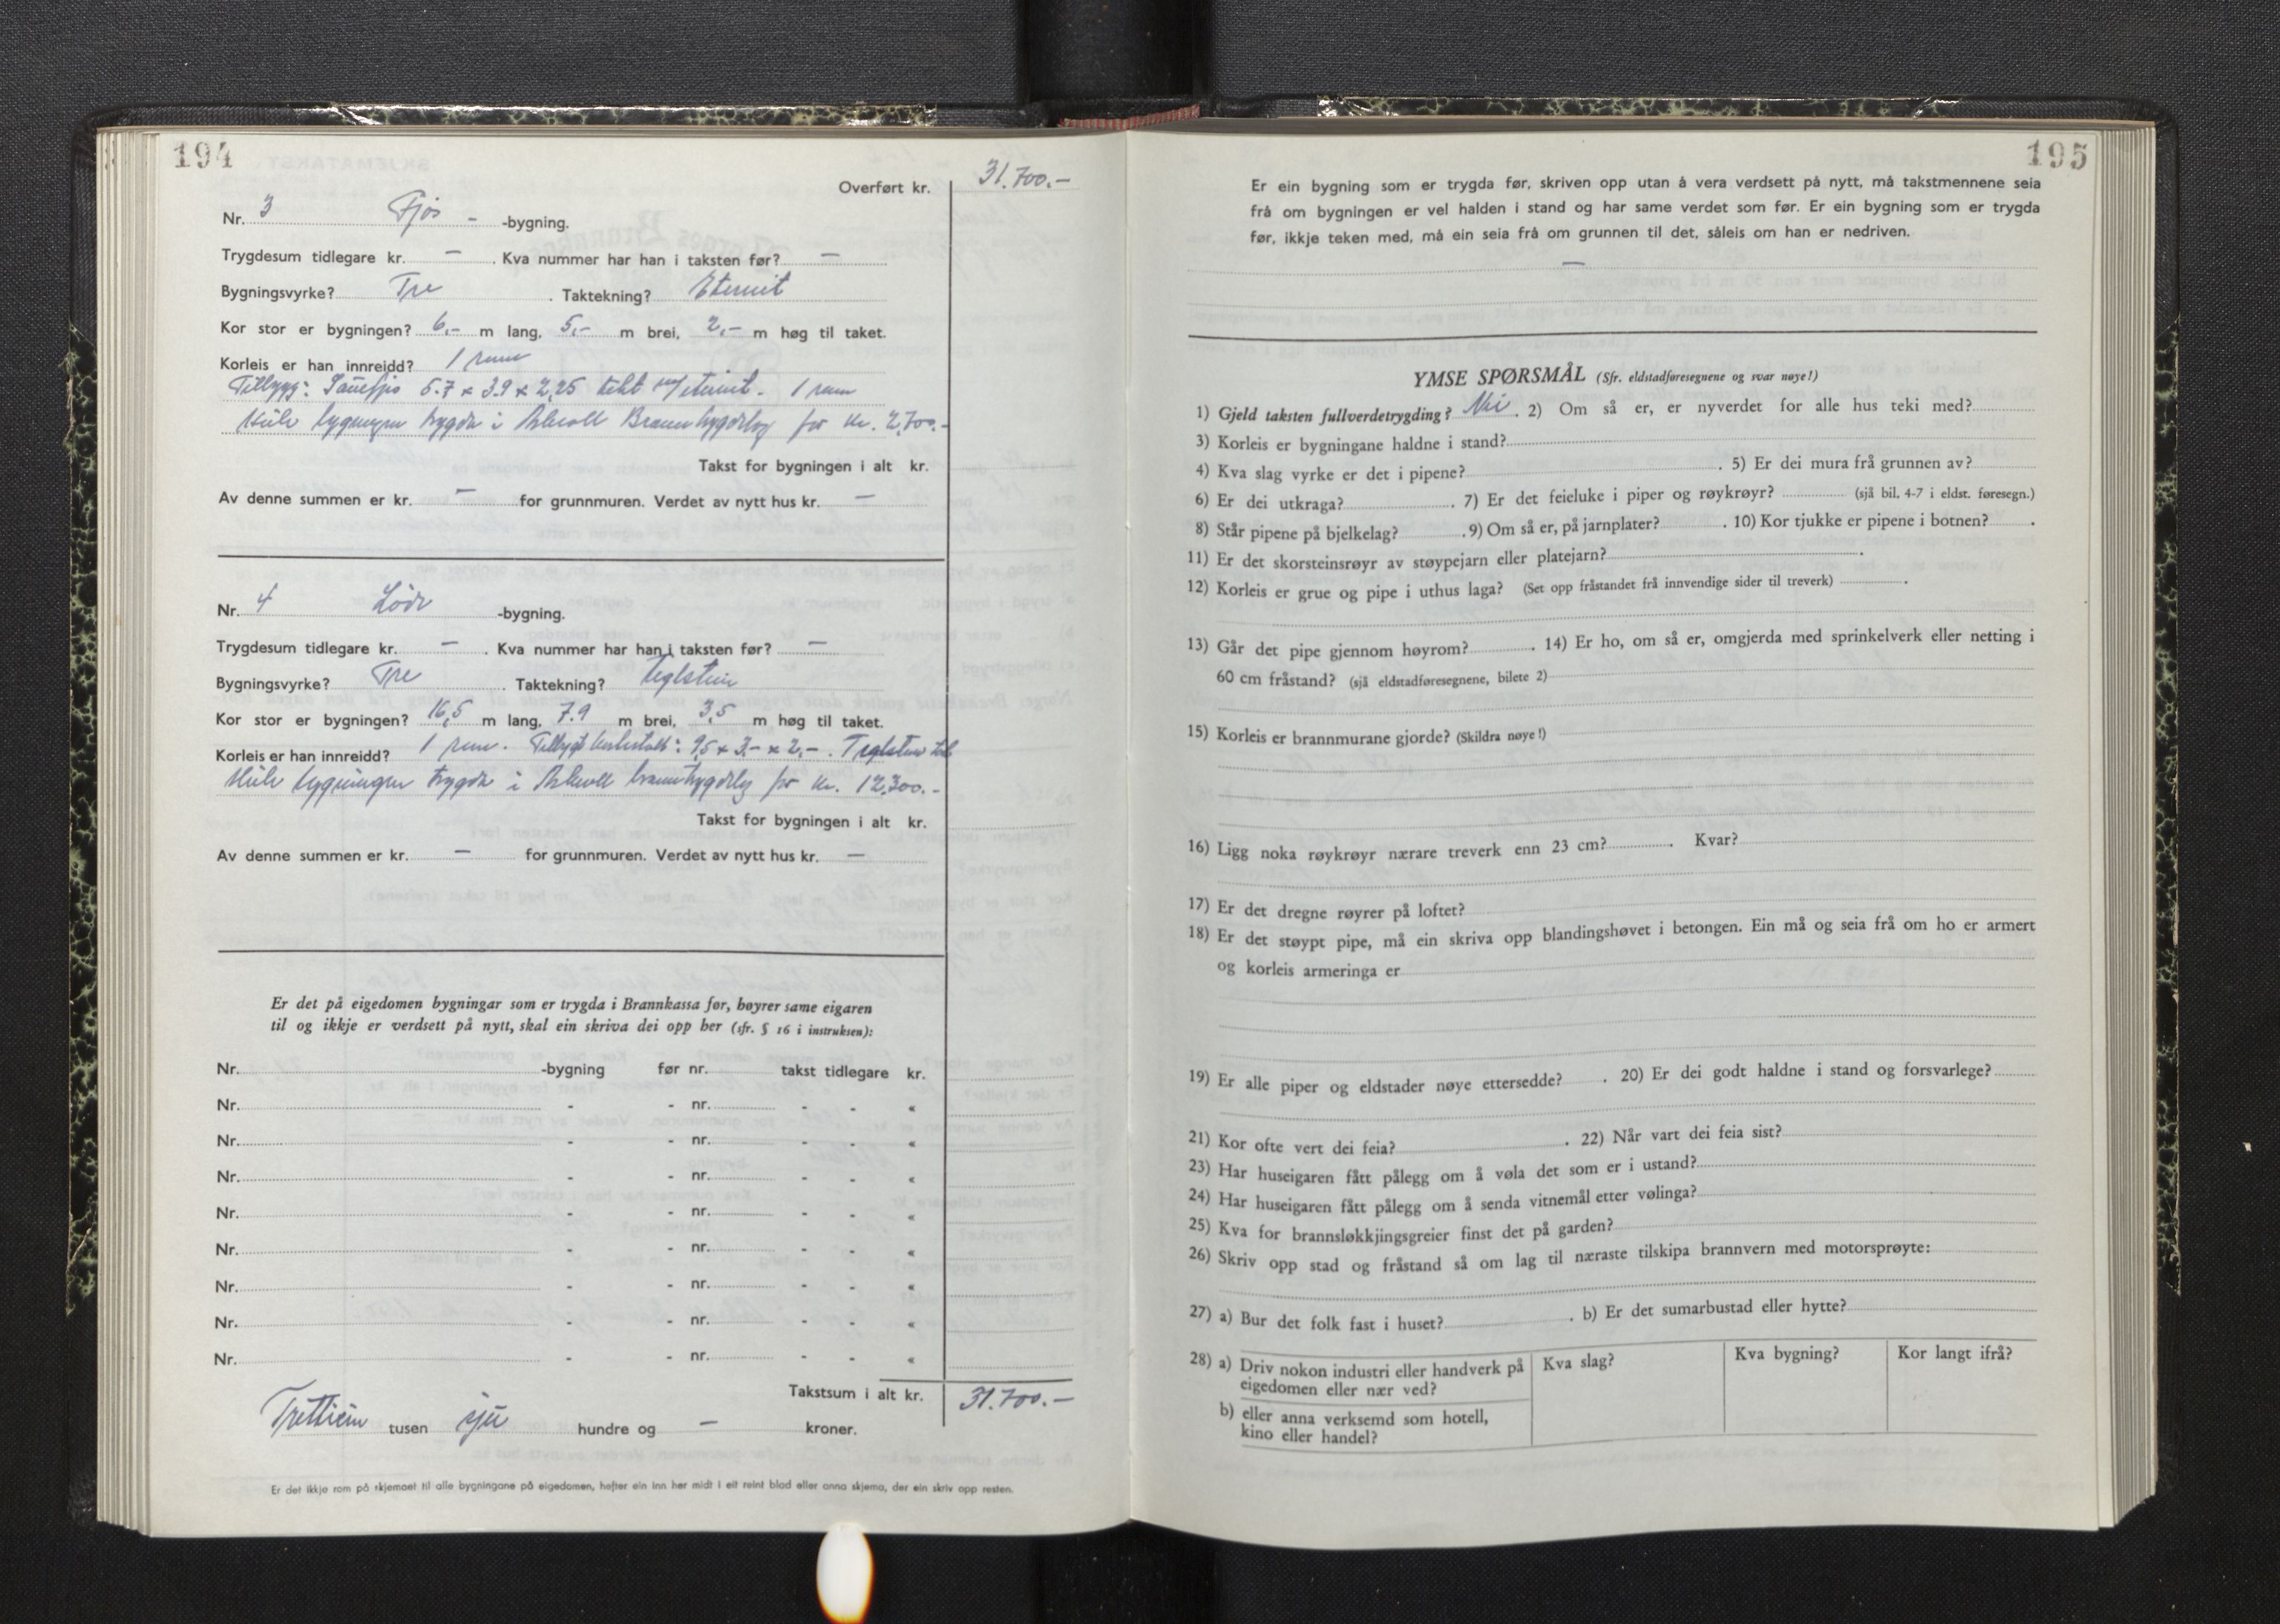 194
Overført kr. 31.700.-
Nr. 3 Fjøs - -bygning.
Trygdesum tidlegare kr. — . Kva nummer har han i taksten før? —
Bygningsvyrke? Tre . Taktekning? Eternit
Kor stor er bygningen? 6,- m lang, 5,- m brei, 2,- m høg til taket.
Korleis er han innreidd? 1 rum
Tilbygg: Sauefjøs 5.7 x 3.9 x 2,25 tekt m/eternit. 1 rum
Hele bygningen trygda i Askvoll Branntrygdelag for kr. 2,700.-
Takst for bygningen i alt kr.
Av denne summen er kr. — for grunnmuren. Verdet av nytt hus kr. —
Nr. 4 Løde -bygning.
Trygdesum tidlegare kr. — . Kva nummer har han i taksten før? —
Bygningsvyrke? Tre . Taktekning? teglstein
Kor stor er bygningen? 16,5 m lang, 7.9 m brei, 3,5 m høg til taket.
Korleis er han innreidd? 1 rum. Tilbygt 9,5 x 3.- x 2,-. Teglstein
Hele bygningen trygda i Askvoll branntrygdelag for kr. 12,300.-
Takst for bygningen i alt kr.
Av denne summen er kr. — for grunnmuren. Verdet av nytt hus kr. —
Er det på eigedomen bygningar som er trygda i Brannkassa før, høyrer same eigaren
til og ikkje er verdsett på nytt, skal ein skriva dei opp her (sfr. § 16 i instruksen):
Nr. -bygning før nr. takst tidlegare kr.
Nr. - - nr. - - «
Nr. - - nr. - - «
Nr. - - nr. - - «
Nr. - - nr. - - «
Nr. - - nr. - - «
Nr. - - nr. - - «
Nr. - - nr. - - «
Nr. - - nr. - - «
Takstsum i alt kr. 31.700.-
Trettiein tusen sju hundre og — kroner.
Er det ikkje rom på skjemaet til alle bygningane på eigedomen, hefter ein inn her midt i eit reint blad eller anna skjema, der ein skriv opp resten.
195
Er ein bygning som er trygda før, skriven opp utan å vera verdsett på nytt, må takstmennene seia
frå om bygningen er vel halden i stand og har same verdet som før. Er ein bygning som er trygda
før, ikkje teken med, må ein seia frå om grunnen til det, såleis om han er nedriven.
—
YMSE SPØRSMÅL (Sfr. eldstadføresegnene og svar nøye!)
1) Gjeld taksten fullverdetrygding? Nei . 2) Om så er, er nyverdet for alle hus teki med?
3) Korleis er bygningane haldne i stand?
4) Kva slag vyrke er det i pipene? . 5) Er dei mura frå grunnen av?
6) Er dei utkraga? . 7) Er det feieluke i piper og røykrøyr? (sjå bil. 4-7 i eldst. føresegn.)
8) Står pipene på bjelkelag? . 9) Om så er, på jarnplater? . 10) Kor tjukke er pipene i botnen? .
11) Er det skorsteinsrøyr av støypejarn eller platejarn? .
12) Korleis er grue og pipe i uthus laga? (Set opp fråstandet frå innvendige sider til treverk) .
13) Går det pipe gjennom høyrom? . 14) Er ho, om så er, omgjerda med sprinkelverk eller netting i
60 cm fråstand? (sjå eldstadføresegnene, bilete 2)
15) Korleis er brannmurane gjorde? (Skildra nøye!)
16) Ligg noka røykrøyr nærare treverk enn 23 cm? . Kvar?
17) Er det dregne røyrer på loftet?
18) Er det støypt pipe, må ein skriva opp blandingshøvet i betongen. Ein må og seia frå om ho er armert
og korleis armeringa er
19) Er alle piper og eldstader nøye ettersedde? . 20) Er dei godt haldne i stand og forsvarlege?
21) Kor ofte vert dei feia? . 22) Når vart dei feia sist?
23) Har huseigaren fått pålegg om å vøla det som er i ustand?
24) Har huseigaren fått pålegg om å senda vitnemål etter vølinga?
25) Kva for brannsløkkjingsgreier finst det på garden?
26) Skriv opp stad og fråstand så om lag til næraste tilskipa brannvern med motorsprøyte:
27) a) Bur det folk fast i huset? . b) Er det sumarbustad eller hytte?
28) a) Driv nokon industri eller handverk på
eigedomen eller nær ved?
Kva slag? Kva bygning? Kor langt ifrå?
b) eller anna verksemd som hotell,
kino eller handel?